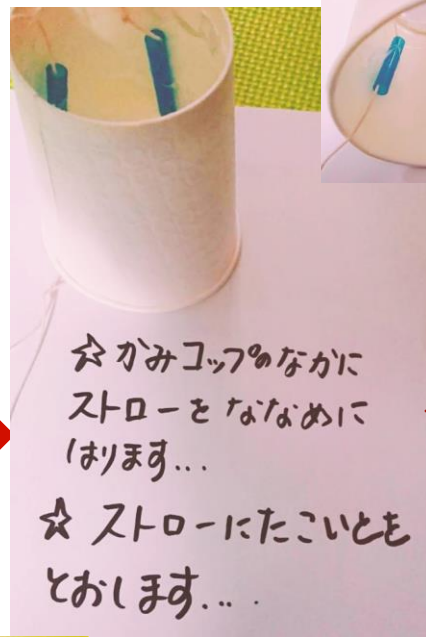 ☆かみコップのなかに
ストローをななめに
はります...
☆ ストローにたこいとを
とおします...